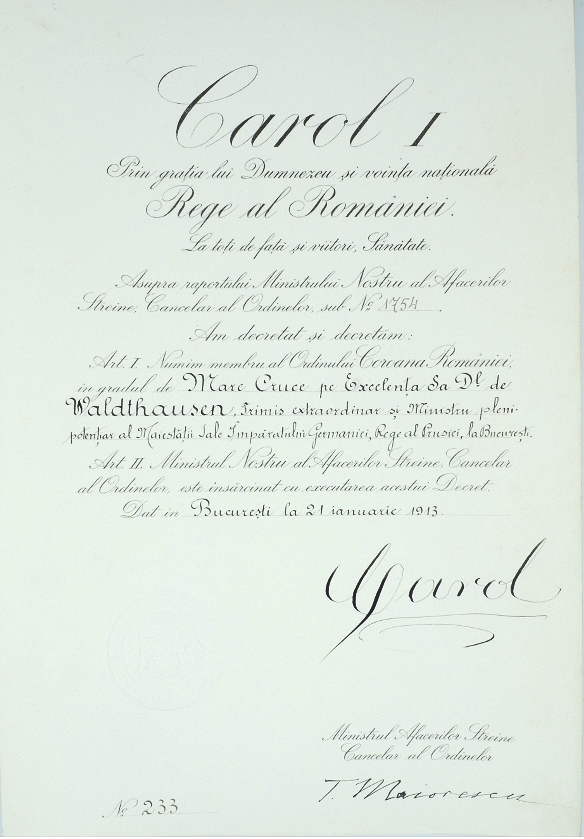 Carol I
Prin grația lui Dumnezeu și voința națională
Rege al României.
La toți de față și viitori, Sănătate.
Asupra raportului Ministrului Nostru al Afacerilor
Streine, Cancelar al Ordinelor, sub No 1754.
Am decretat și decretăm:
Art. I. Numim membru al Ordinului Coroana României,
in gradul de Mare Cruce pe Excelența Sa Dl de
Waldthausen, Trimis extraordinar și Ministru pleni-
potențiar al Maiestății Sale Împăratului Germaniei, Rege al Prusiei, la București.
Art. II. Ministrul Nostru al Afacerilor Streine, Cancelar
al Ordinelor, este însărcinat cu executarea acestui Decret.
Dat in București la 21 ianuarie 1913.
Carol
Ministrul Afacerilor Streine
Cancelar al Ordinelor
T. Maiorescu
No 233